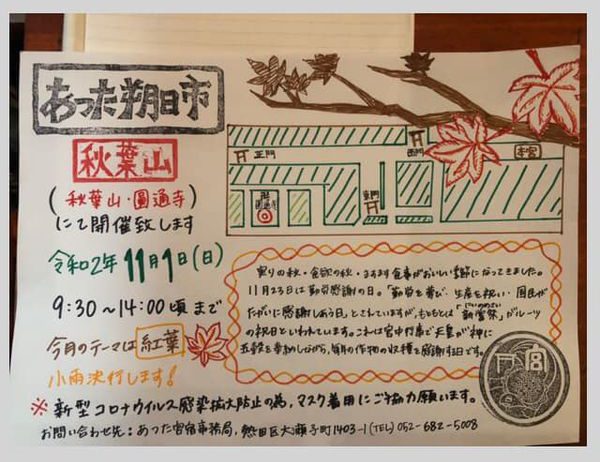 あった朔日市
秋葉山
(秋葉山・圓通寺)
にて開催致します
令和2年11月1日(日)
9:30〜14:00頃まで
今月のテーマは紅葉
小雨決行します!
正門
西門
本宮
東門
圓通寺
実りの秋・食欲の秋・ますます食事がおいしい季節になってきました。
11月23日は勤労感謝の日。「勤労を尊び・生産を祝い・国民が
たがいに感謝しあう日」とされていますが、もともとは「新嘗祭」がルーツ
の祝日といわれています。これは宮中行事で天皇が神に
五穀を奉納しながら、毎月の作物の収穫を感謝する日です。
宮
※新型コロナウイルス感染拡大防止の為、マスク着用にご協力願います。
お問い合わせ先:あった宮宿事務局、熱田区大瀬子町1403-1(TEL)052-682-5008